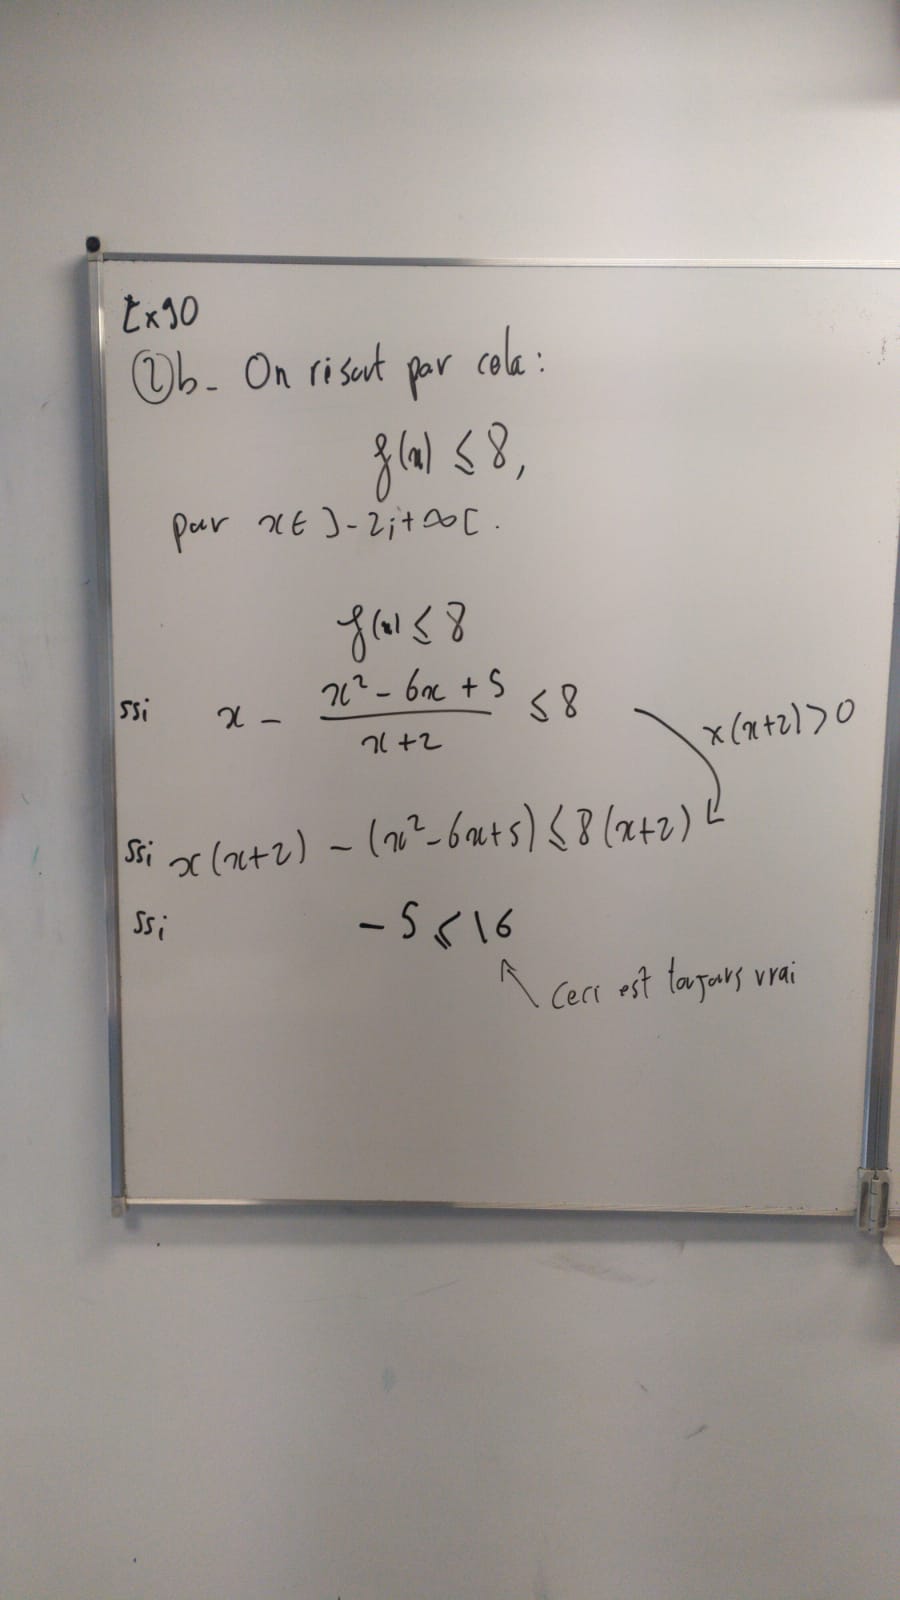 Ex90
② b- On résout par cela :
f(x) ≤ 8,
pour x ∈ ]-2;+∞[.
f(x) ≤ 8
ssi x - (x² - 6x + 5)/(x + 2) ≤ 8
×(x+2)>0
ssi x(x+2) - (x² - 6x + 5) ≤ 8(x+2)
ssi -5 ≤ 16
Ceci est toujours vrai